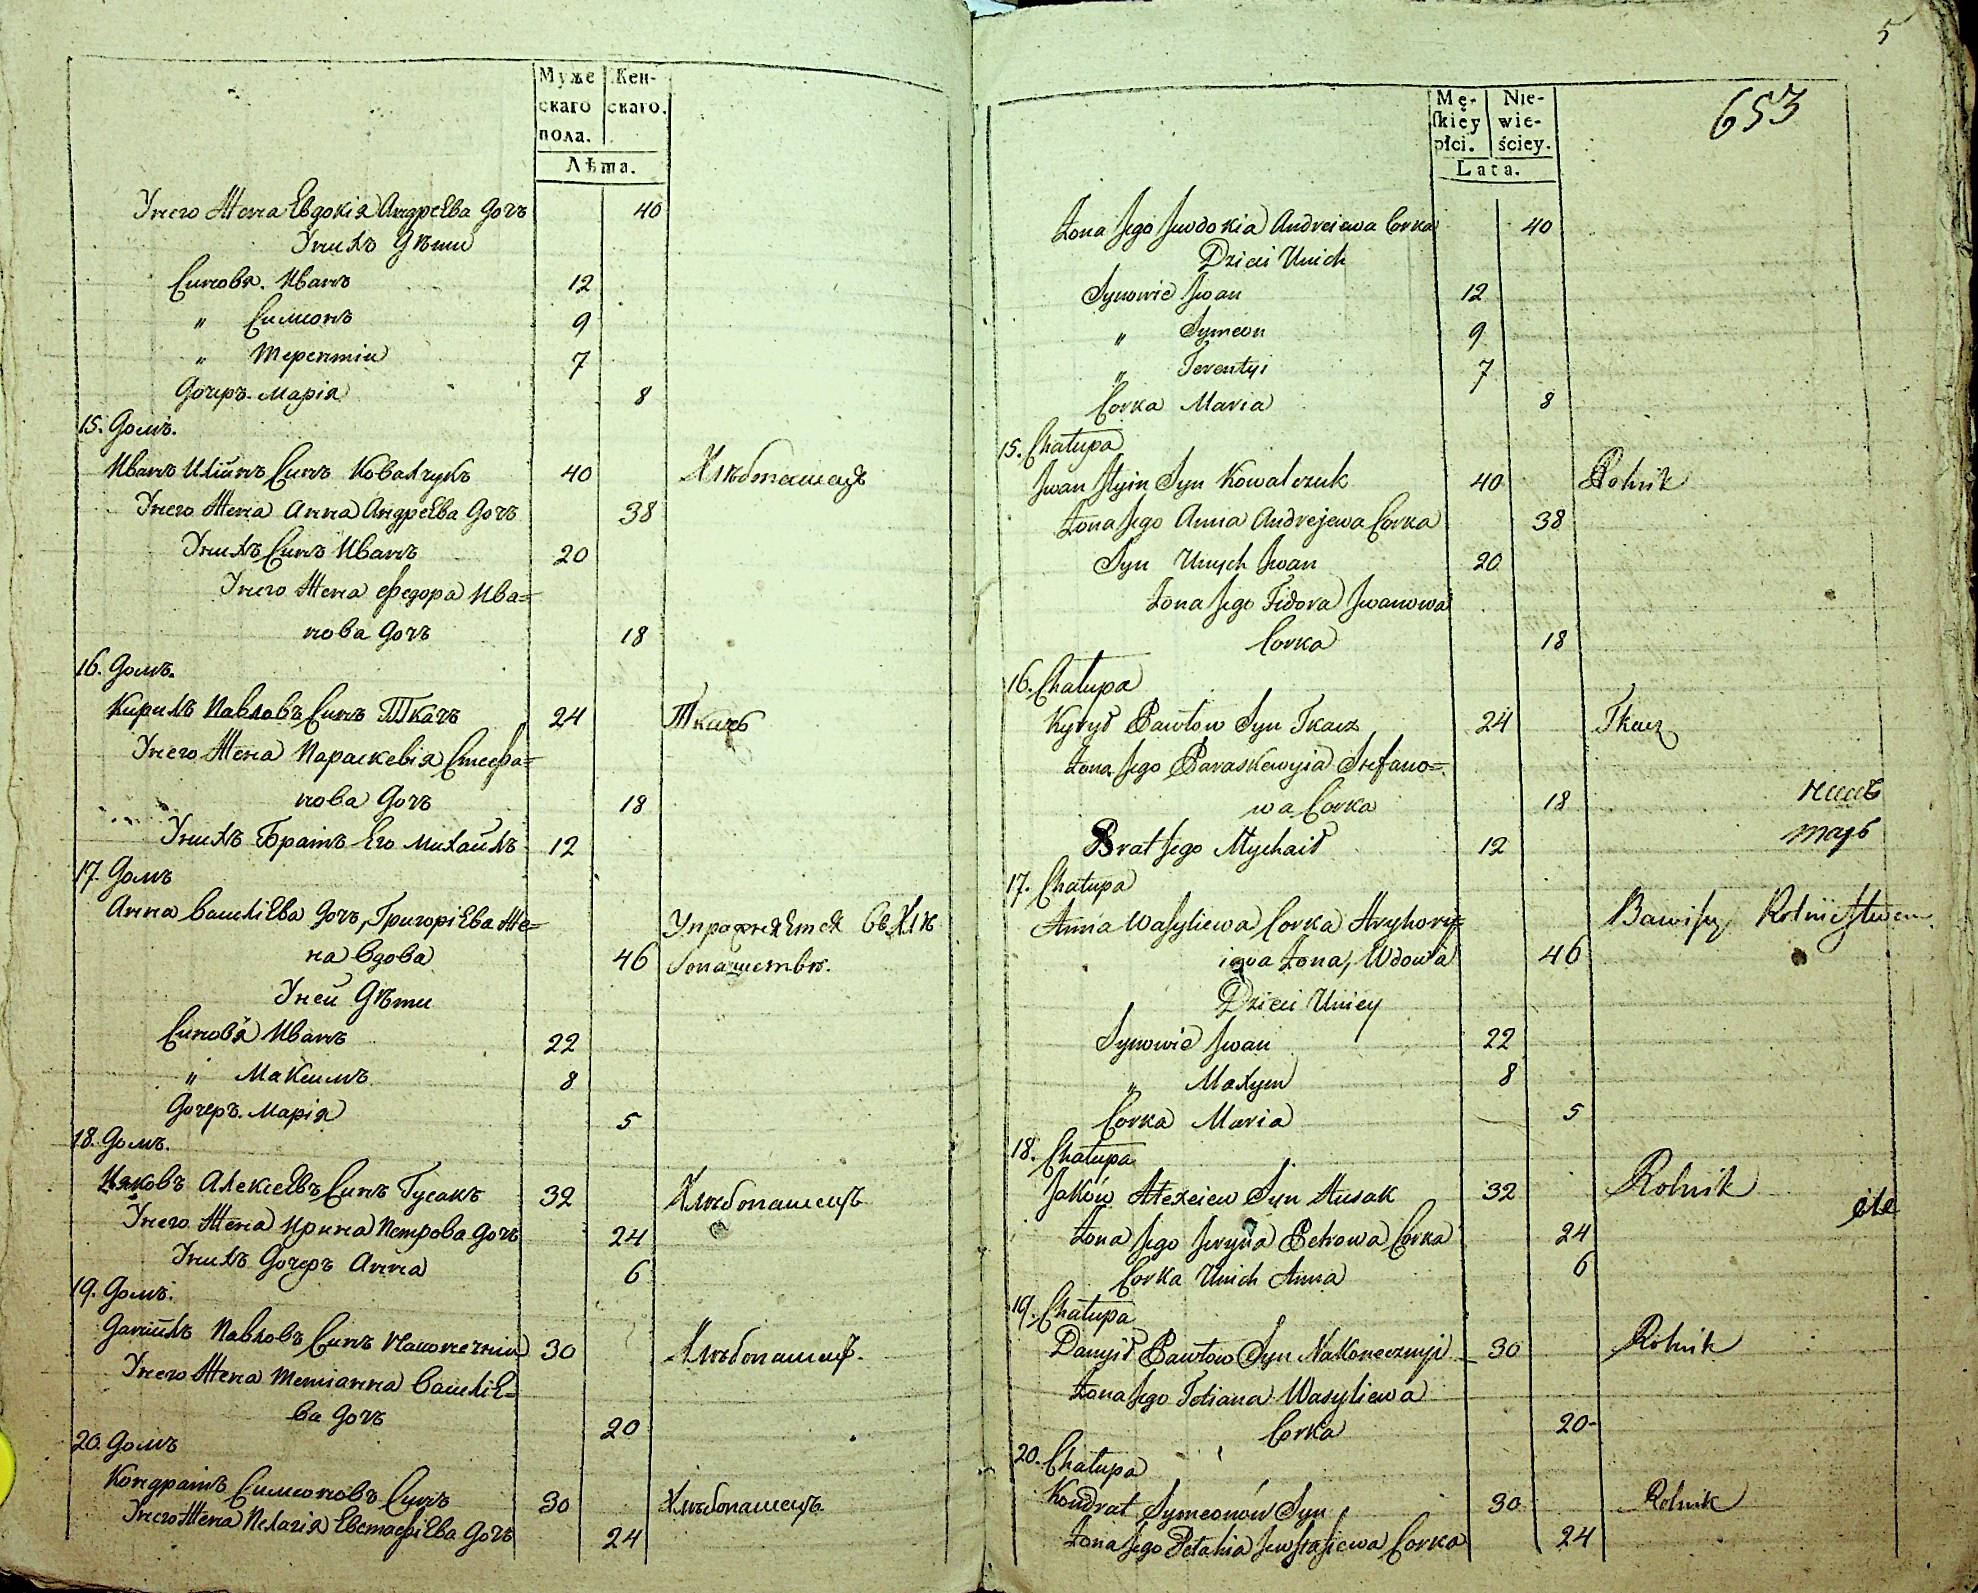 Муже
скаго
пола.
Жен-
скаго.
Лѣта.
Унего Жена Евдокія Андреева дочь 40
Унихъ Дѣти
Синовя. Иванъ 12
„ Симионъ 9
„ Терентии 7
Дочеръ. Марія 8
15. Домъ.
Иванъ Илїинъ Синъ Ковалчукъ 40 Хлѣбопашецъ
Унего Жена Анна Андреева Дочъ 38
Унихъ Синъ Иванъ 20
Унего Жена Федора Ива=
нова Дочъ 18
16. Домъ.
Кирилъ Павловъ Синъ Ткачъ 24 Ткачъ
Унего Жена Параскевія Стефа=
нова Дочъ 18
Унихъ Братъ Его Михаилъ 12
17. Домъ
Анна Василіева Дочъ, Григоріева Же=
на вдова 46
Упражняется въ Хлѣ
бопашествѣ.
Уней Дѣти
Синовя Иванъ 22
„ Максимъ 8
Дочеръ. Марія 5
18. Домъ.
Ияковъ Алексеевъ Синъ Гусакъ 32 Хлѣбопашецъ
Унего Жена Ирина Петрова Дочъ 24
Унихъ Дочеръ Анна 6
19. Домъ.
Данїилъ Павловъ Синъ Наконечнии 30 Хлѣбопашецъ.
Унего Жена Тетианна Василіе=
ва Дочъ 20
20. Домъ
Кондратъ Симионовъ Синъ 30 Хлѣбопашецъ
Унего Жена Пелагія Евстафіева Дочъ 24
5
653
Mę-
ſkiey
płci.
Nie-
wie-
ściey.
Lata.
Żona Jego Jewdokia Andreiewa Corka 40
Dzieci Unich
Synowie Jwan 12
„ Symeon 9
„ Terentyi 7
Corka Maria 8
15. Chałupa
Jwan Jlyin Syn Kowalczuk 40 Rolnik
Żona Jego Anna Andrejewa Corka 38
Syn Unych Jwan 20
Żona Jego Fedora Jwanowa
Corka 18
16. Chałupa
Kyrył Pawłow Syn Tkacz 24 Tkacz
Żona Jego Paraskewyia Stefano=
wa Corka 18
Brat Jego Mychaił 12
17. Chałupa
Anna Wasyliewa Corka Hryhory=
iewa Żona, Wdowa 46
Bawi się Rolnictwem
Dzieci Uniey
Synowie Jwan 22
„ Maxym 8
Corka Maria 5
18. Chałupa
Jaków Alexeiew Syn Husak 32 Rolnik
Żona Jego Jeryna Petrowa Corka 24
Corka Unich Anna 6
19. Chałupa
Danyił Pawłow Syn Nakonecznyi 30 Rolnik
Żona Jego Tetiana Wasyliewa
Corka 20
20. Chałupa
Kondrat Symeonów Syn 30 Rolnik
Żona Jego Pełahia Jewstafiewa Corka 24